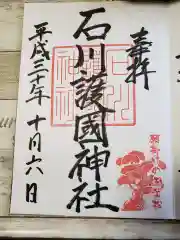 奉拝
石川護國神社
平成三十年十月六日